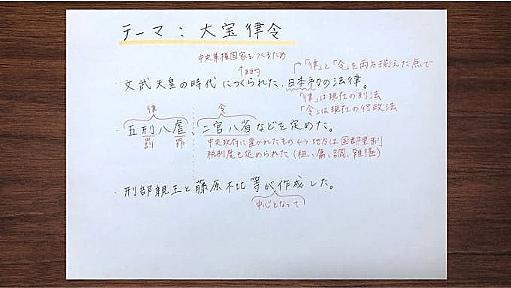 テーマ：大宝律令
中央集権国家をつくるため
↑目的
「律」と「令」を両方揃えた点で
・文武天皇の時代につくられた、日本初の法律。
「律」は現在の刑法
「令」は現在の行政法
律 令
・五刑八虐、二官八省などを定めた。
罰 罪
中央政府に置かれたもの ↔ 地方は国郡里制
税制度も定められた(租、庸、調、雑徭)
・刑部親王と藤原不比等が作成した。
中心となって